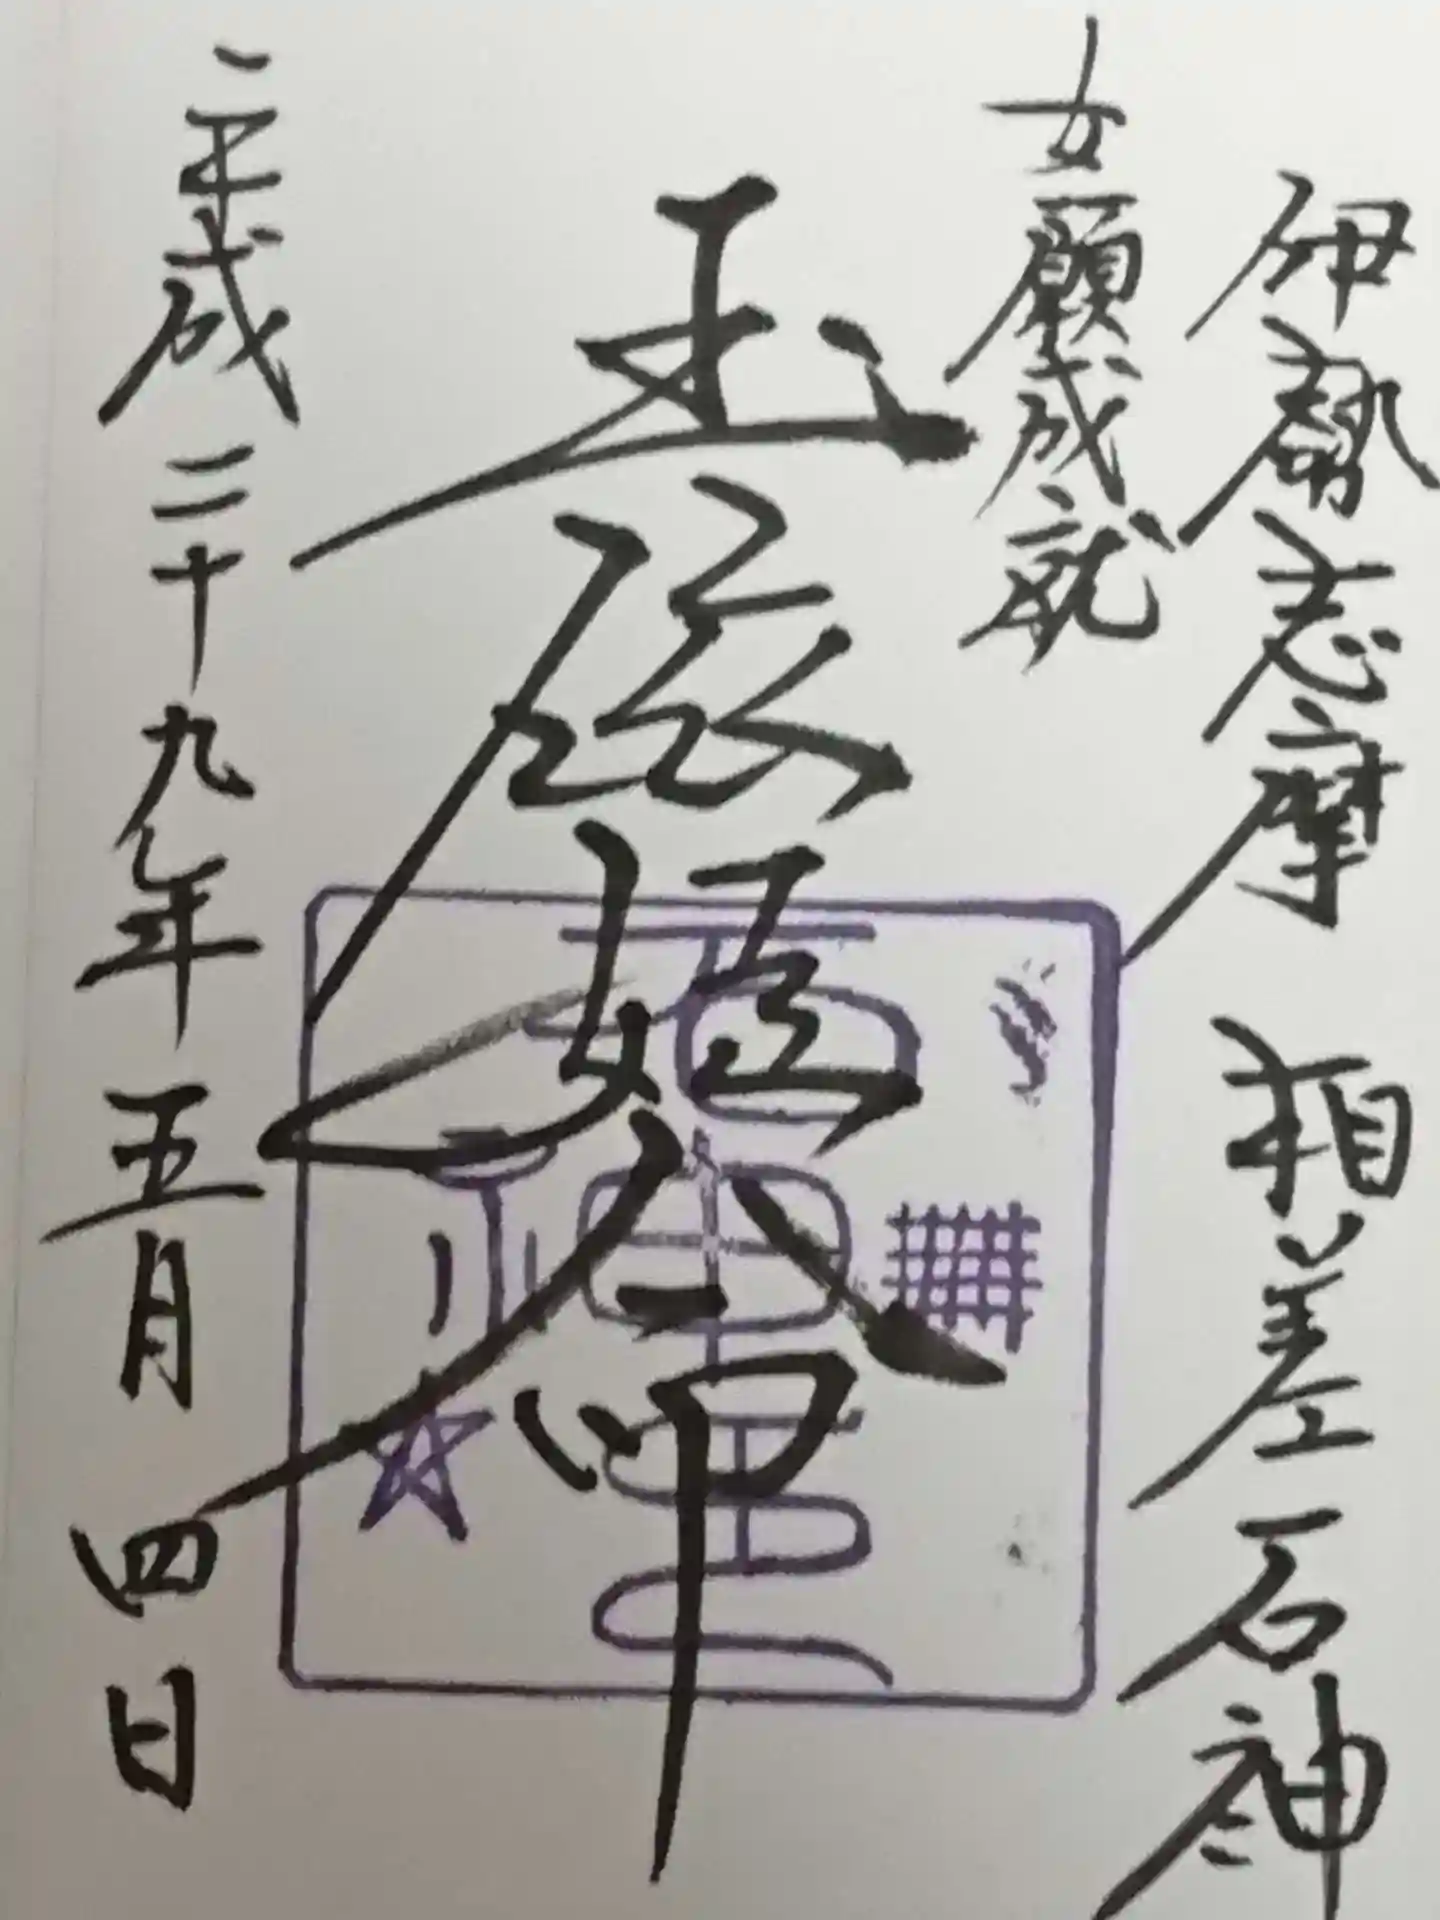 伊勢志摩 相差 石神
女願成就
玉依姫命
平成二十九年五月四日